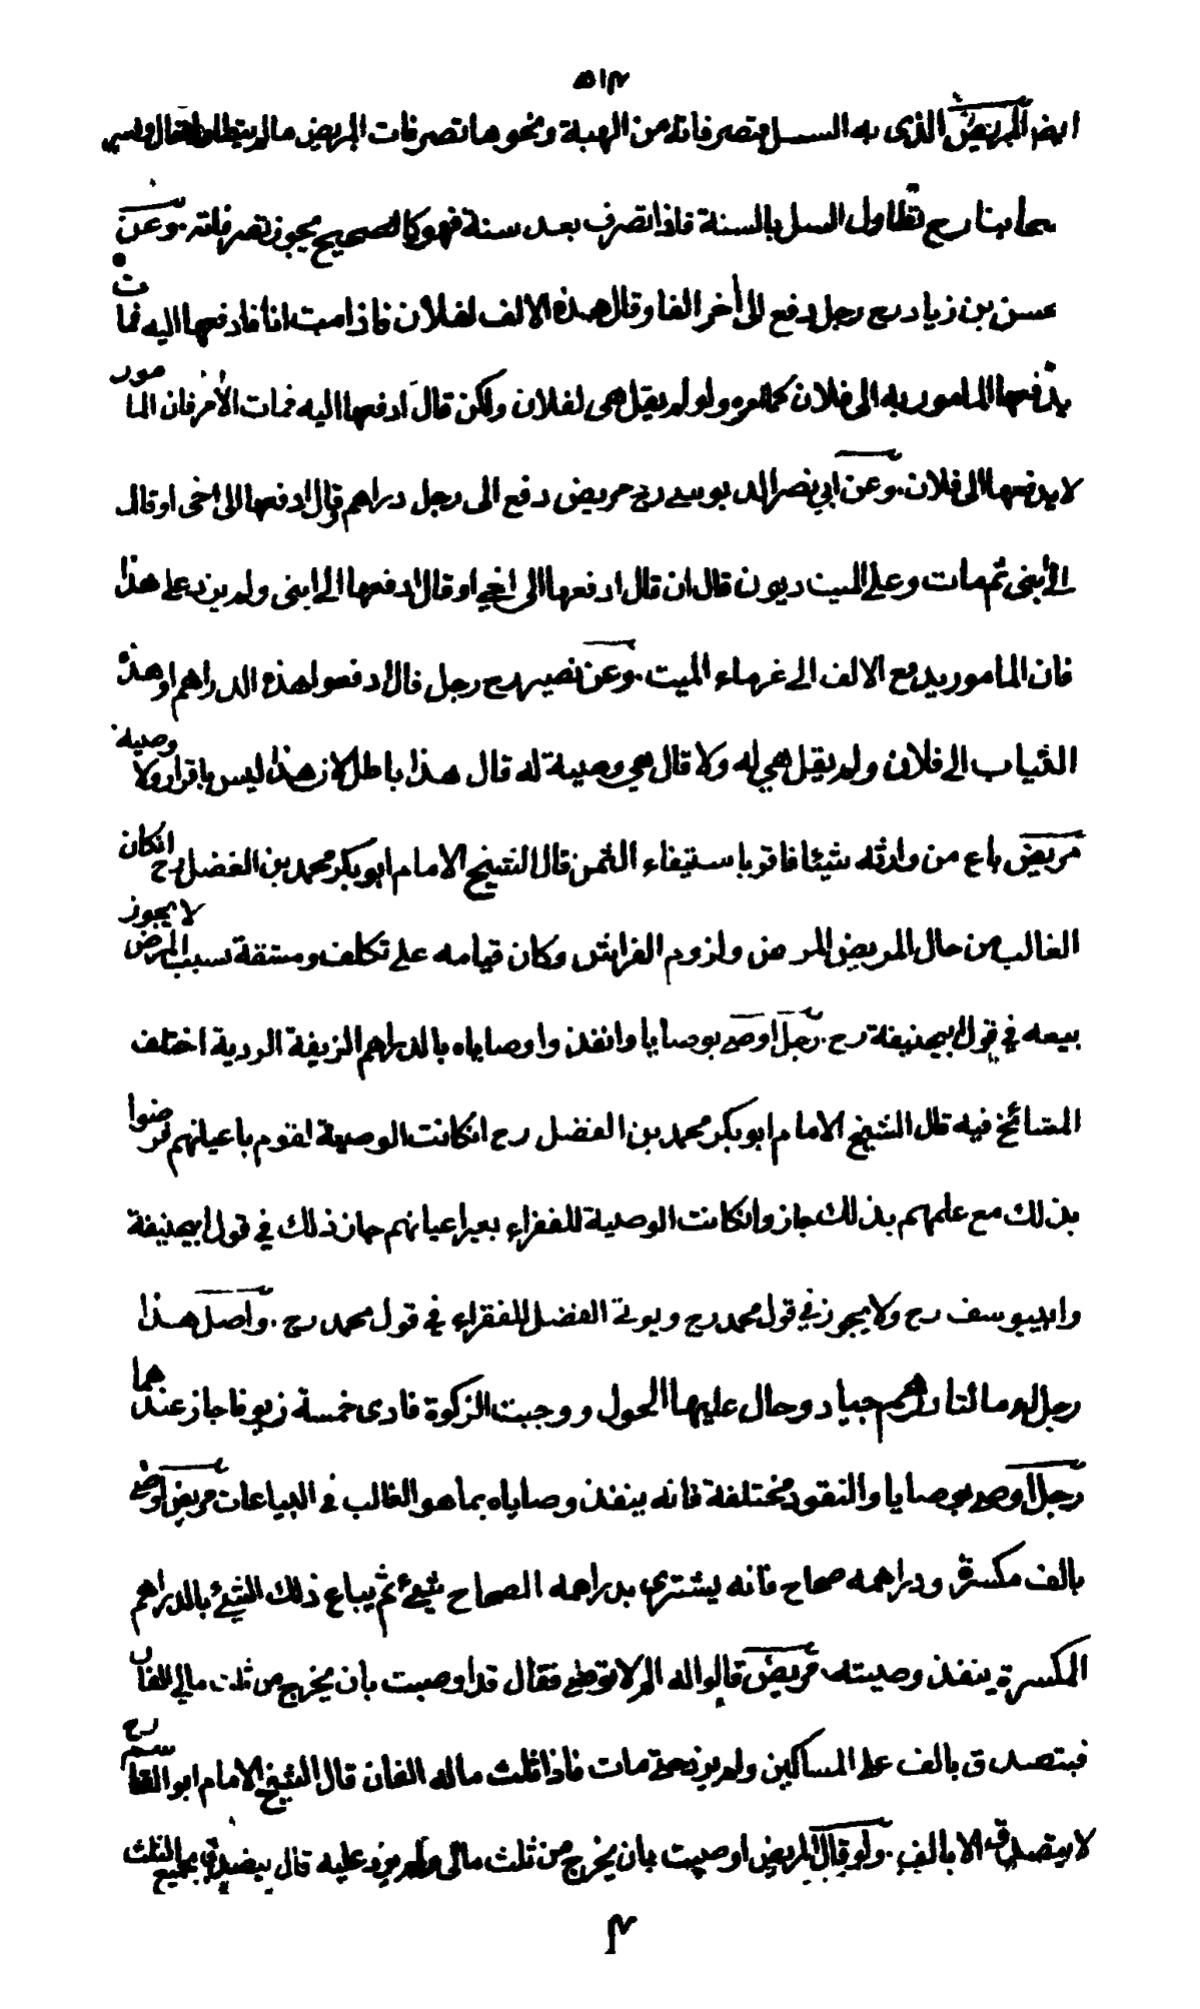 ٥١٢
ايضا المريض الذى به السل فتصرفاته من الهبة ونحوها تصرفات المريض مالم يتطاول قال وفسر
اصحابنا رح تطاول السل بالسنة فاذا تصرف بعد سنة فهو كالصحيح يجوز تصرفاته وعن
حسن بن زياد رح رجل دفع الى أخر الفا وقال هذه الالف لفلان فاذا مت انا فادفعها اليه فمات
يدفعها المامور به الى فلان كما امره ولو لم يقل هى لفلان ولكن قال ادفعها اليه فمات الأمر فان المامور
لا يدفعها الى فلان . وعن ابي نصر الدبوسي رح مريض دفع الى رجل دراهم وقال ادفعها الى اخى او قال
الى ابنى ثم مات وعلى الميت ديون قال ان قال ادفعها الى اخي او قال ادفعها الى ابنى ولم يزد على هذا
فان المامور يدفع الالف الى غرماء الميت . وعن نصير رح رجل قال ادفعوا هذه الدراهم او هذه
الثياب الى فلان ولم يقل هي له ولا قال هي وصية له قال هذا باطل لان هذا ليس باقرار ولا وصية
مريض باع من وارثه شيئا فاقر باستيفاء الثمن قال الشيخ الامام ابو بكر محمد بن الفضل رح انكان
الغالب من حال المريض المرض ولزوم الفراش وكان قيامه على تكلف ومشقة بسبب المرض لا يجوز
بيعه في قول ابيحنيفة رح . رجل اوصى بوصايا وانفذوا وصاياه بالدراهم الزيفة الردية اختلف
المشائخ فيه قال الشيخ الامام ابو بكر محمد بن الفضل رح انكانت الوصية لقوم باعيانهم فرضوا
بذلك مع علمهم بذلك جاز وانكانت الوصية للفقراء بغير اعيانهم جاز ذلك في قول ابيحنيفة
وابيوسف رح ولا يجوز في قول محمد رح ويوتى الفضل للفقراء في قول محمد رح . واصل هذا
رجل له مائتا درهم جياد وحال عليها الحول ووجبت الزكوة فادى خمسة زيوفا جاز عندهما
رجل اوصى بوصايا والنقود مختلفة فانه ينفذ وصاياه بما هو الغالب في البياعات مريض اوصى
بالف مكسرة ودراهمه صحاح فانه يشترى بدراهمه الصحاح شيئ ثم يباع ذلك الشيئ بالدراهم
المكسرة ينفذ وصيته مريض قالوا له الم لا توصى فقال قد اوصيت بان يخرج من ثلث مالي الفان
فيتصدق بالف على المساكين ولم يزد حتى مات فاذا ثلث ماله الفان قال الشيخ الامام ابو القاسم رح
لا يتصدق الا بالف . ولو قال المريض اوصيت بان يخرج من ثلث مالى ولم يزد عليه قال يتصدق بجميع الثلث